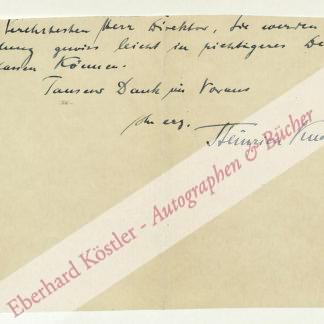 verehrtester Herr Direktor, Sie werden
dung gewiss leicht in richtigeres De
lassen können.
Tausend Dank im Voraus
Ihr erg.
Heinrich
Eberhard Köstler - Autographen & Bücher